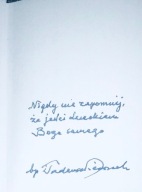 Nigdy nie zapomnij,
że jesteś dzieckiem
Boga samego
bp Tadeusz